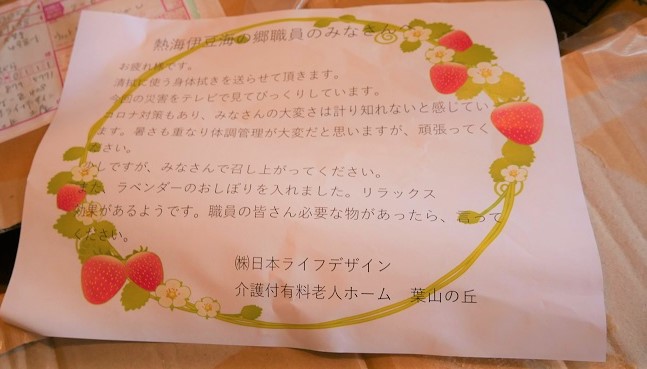 熱海伊豆海の郷職員のみなさん
お疲れ様です。
清拭に使う身体拭きを送らせて頂きます。
今回の災害をテレビで見てびっくりしています。
コロナ対策もあり、みなさんの大変さは計り知れないと感じてい
ます。暑さも重なり体調管理が大変だと思いますが、頑張ってく
ださい。
少しですが、みなさんで召し上がってください。
また、ラベンダーのおしぼりを入れました。リラックス
効果があるようです。職員の皆さん必要な物があったら、言って
ください。
㈱日本ライフデザイン
介護付有料老人ホーム 葉山の丘